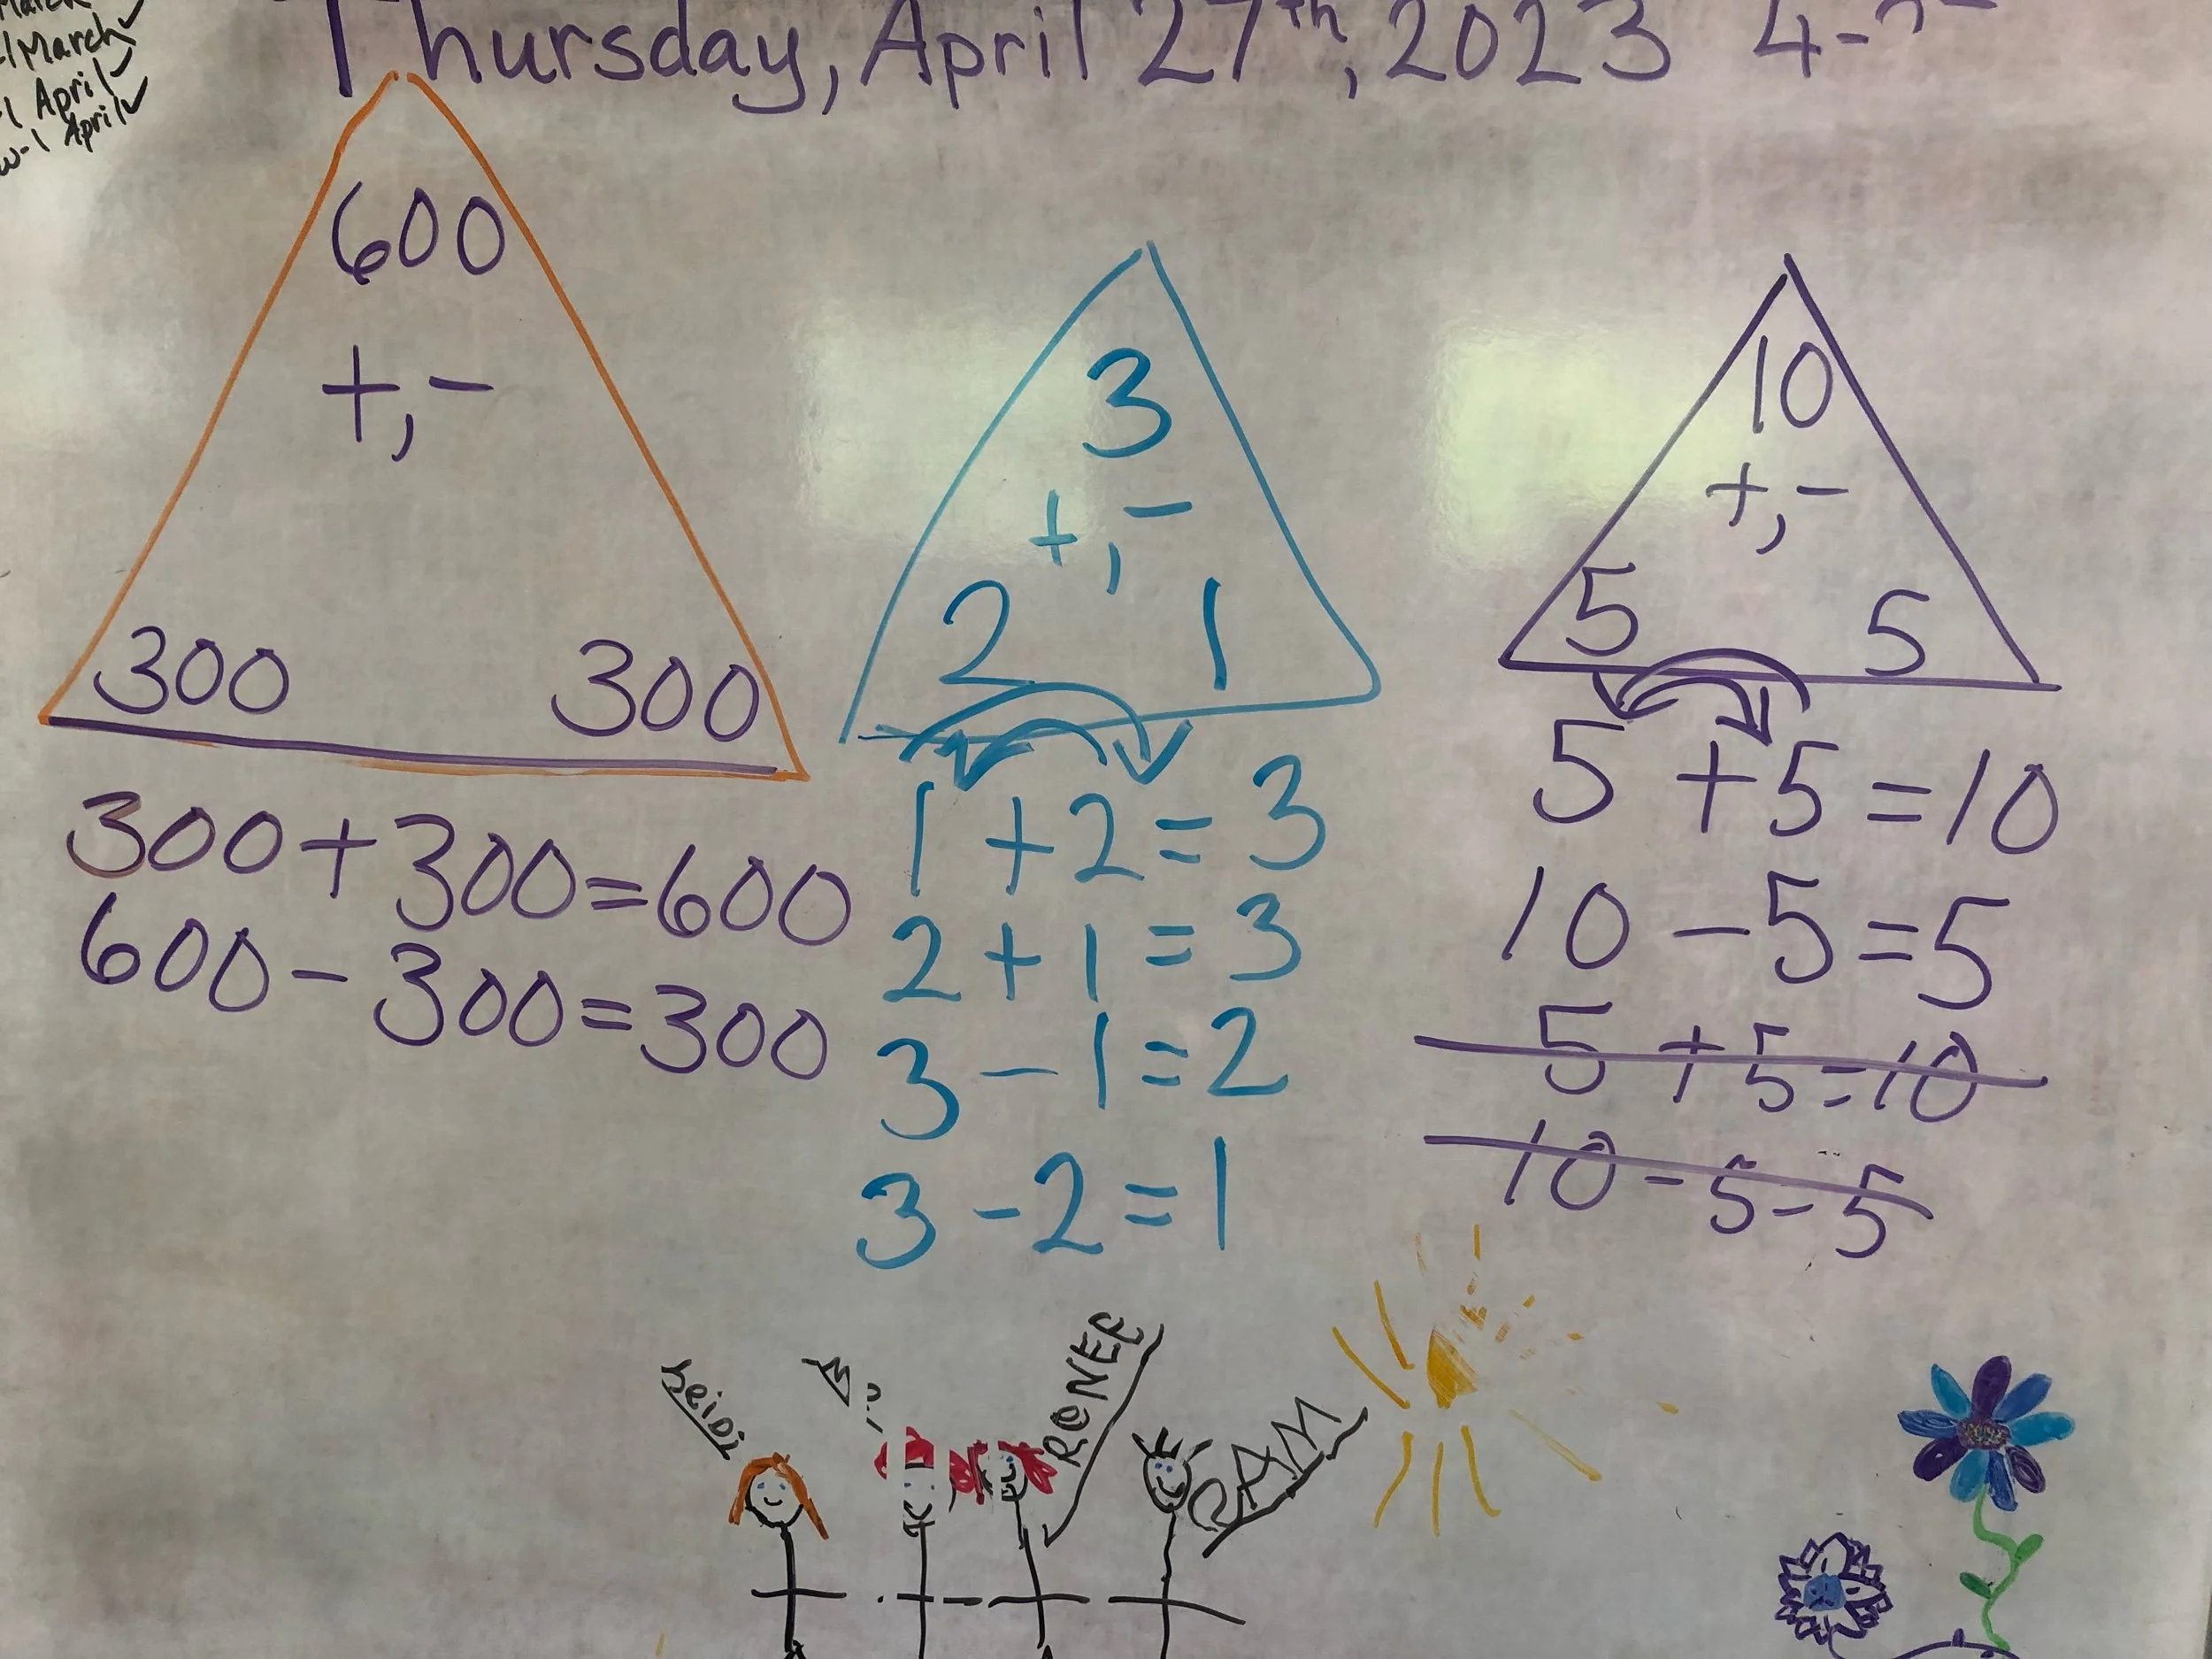 March
-1 March ✓
-1 April ✓
w-1 April ✓
Thursday, April 27th, 2023
600
+,-
300 300
300+300=600
600-300=300
3
+,-
2 1
1+2=3
2+1=3
3-1=2
3-2=1
10
+,-
5 5
5+5=10
10-5=5
5+5=10
10-5=5
heidi
RONEE
SAM